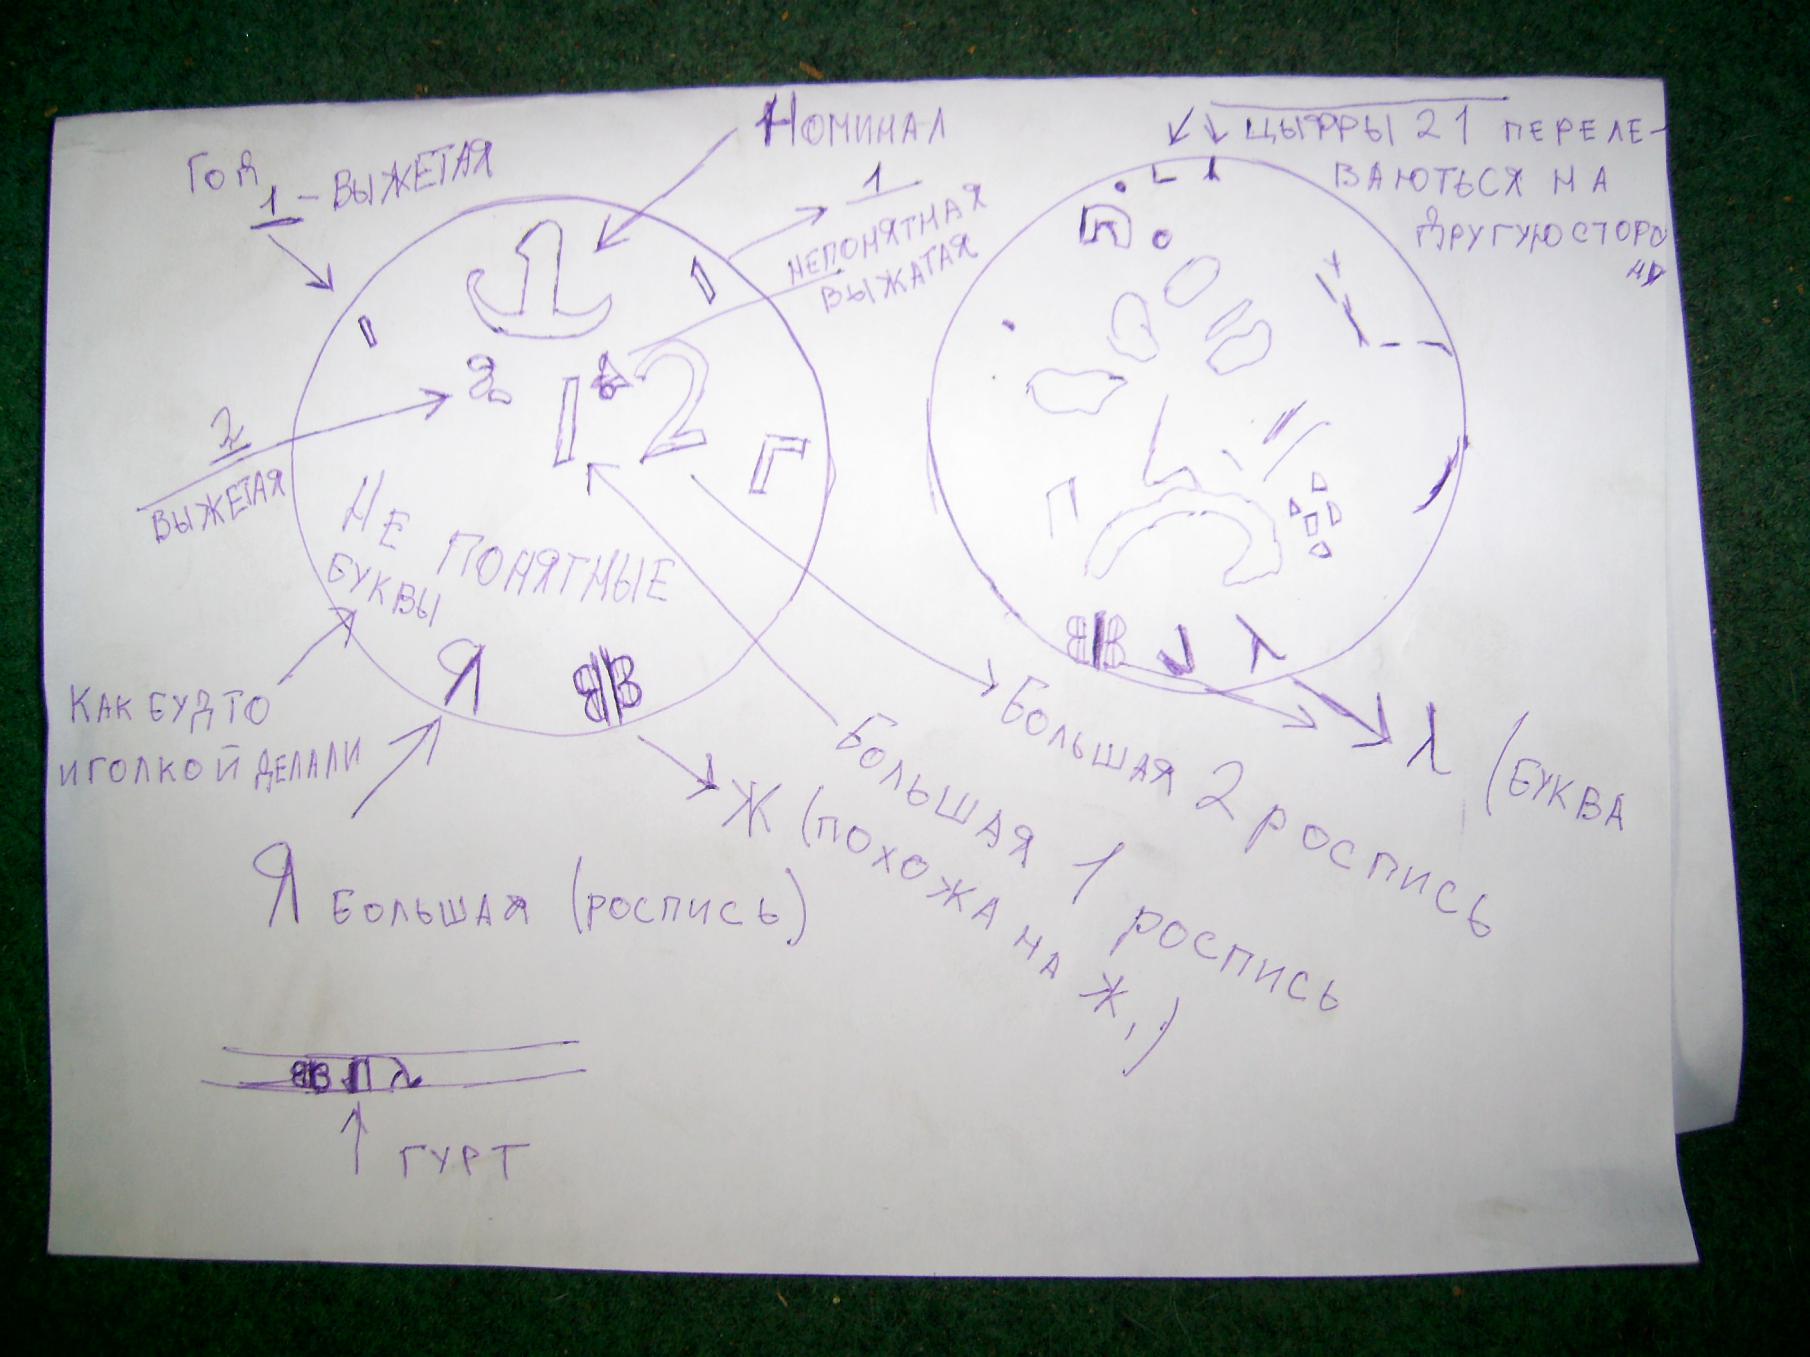 Номинал
Год
1 - выжетая
1
непонятная
выжатая
цыфры 21 переле-
ваються на
другую сторо
ну
1
1 2
Г
2
выжетая
Не понятные
буквы
Я
Как будто
иголкой делали
Я большая (роспись)
Ж (похожа на Ж,)
Большая 1 роспись
Большая 2 роспись
λ (буква
П
λ
гурт